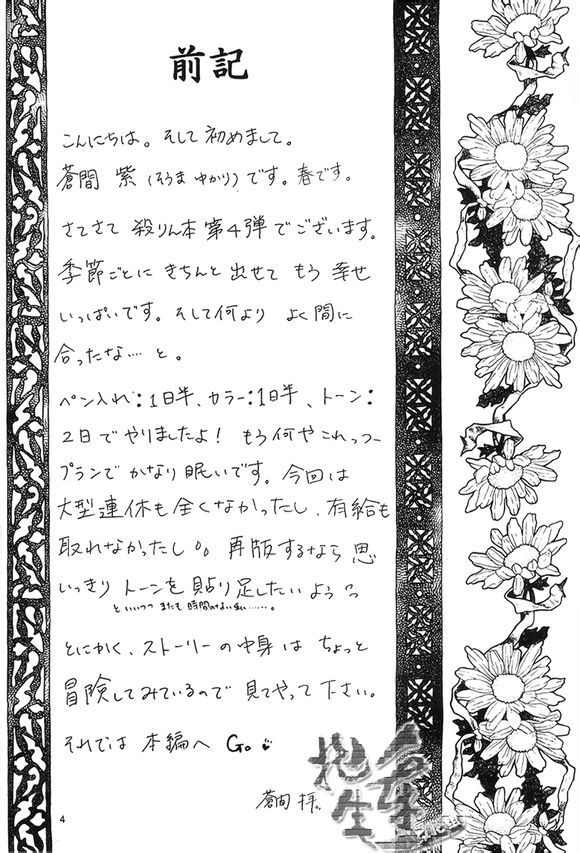 前記
こんにちは。そして初めまして。
蒼間 紫(そうま ゆかり)です。春です。
さてさて 殺りん本 第4弾でございます。
季節ごとに きちんと出せて もう 幸せ
いっぱいです。そして何より よく間に
合ったな… と。
ペン入れ:1日半、カラー:1日半、トーン:
2日でやりましたよ! もう何やこれっつー
プランで かなり眠いです。今回は
大型連休も全くなかったし、有給も
取れなかったし。。再版するなら思
いっきり トーンを貼り足したいようっ
といいつつ またも 時間のない私……。
とにかく、ストーリーの中身は ちょっと
冒険してみているので 見てやって下さい。
それでは 本編へ Go
蒼間 拝。
4